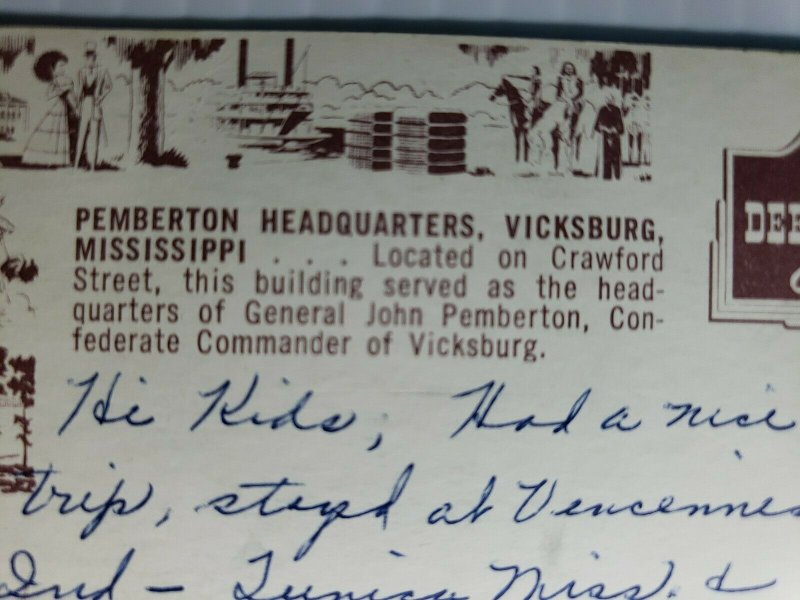 PEMBERTON HEADQUARTERS, VICKSBURG,
MISSISSIPPI . . . Located on Crawford
Street, this building served as the head-
quarters of General John Pemberton, Con-
federate Commander of Vicksburg.
DEE
Hi Kids, Had a nice
trip, stayd at Vencennes
Ind - Tunica Miss. &